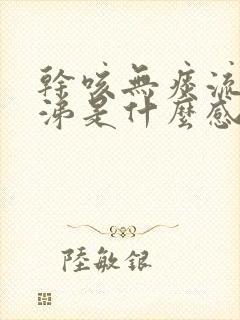 幹咳無痰流
涕是什麼感
陸敏銀